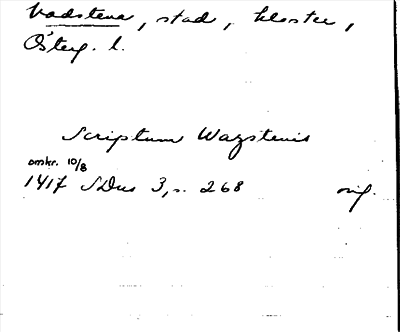 Vadstena, stad, kloster,
Österg. l.
Scriptum Wazstenis
omkr. 10/8
1417 SDns 3, s. 268 orig.